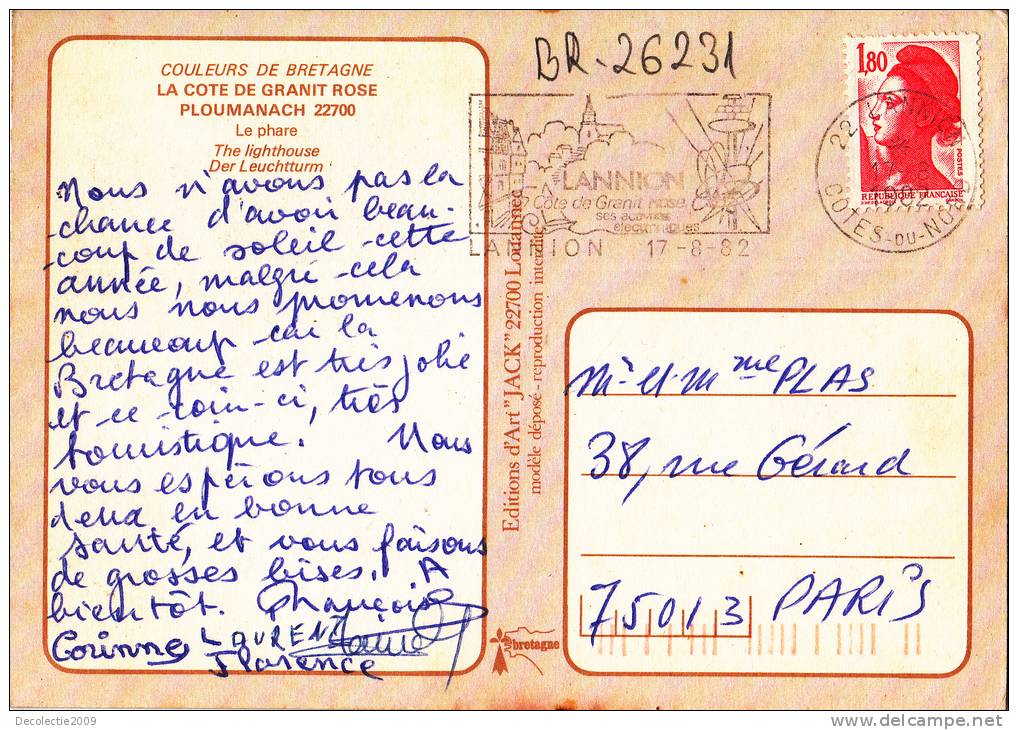 BR-26231
COULEURS DE BRETAGNE
LA COTE DE GRANIT ROSE
PLOUMANACH 22700
Le phare
The lighthouse
Der Leuchtturm
Nous n'avons pas la
chance d'avoir beau-
coup de soleil cette
année, malgré cela
nous nous promenons
beaucoup car la
Bretagne est très jolie
et ce coin-ci, très
touristique. Nous
vous espérons tous
deux en bonne
santé, et vous faisons
de grosses bises. A
bientôt. Françoise
Corinne LAURENT
Florence
Editions d'Art "JACK" 22700 Louannec
modèle déposé - reproduction interdite
bretagne
LANNION
Côte de Granit ROSE
ses activités
électroniques
LANNION 17-8-82
1,80
POSTES
REPUBLIQUE FRANÇAISE
22 LANNION
17-8
COTES-DU-NORD
Mr et Mme PLAS
38, rue Gérard
75013 PARIS
Decolectie2009
http://www.delcampe.net